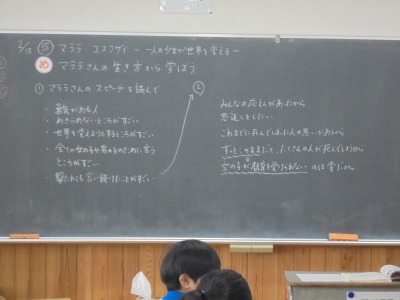 2/18 35 マララ・ユスフザイ ―一人の少女が世界を変える―
め マララさんの生き方から学ぼう
① マララさんのスピーチを読んで
・勇気がある人
・あきらめないところがすごい
・世界を変えようとするところがすごい
・全ての女の子や男の子のために言う
ところがすごい
・撃たれても言い続けたことがすごい
②
みんなの支えがあったから
恩返しをしたい
これまでに死んでしまった人の思いがあるから
ずっとこのままだと、たくさんの人が死んでしまうから
女の子が教育を受けられないのは変だから